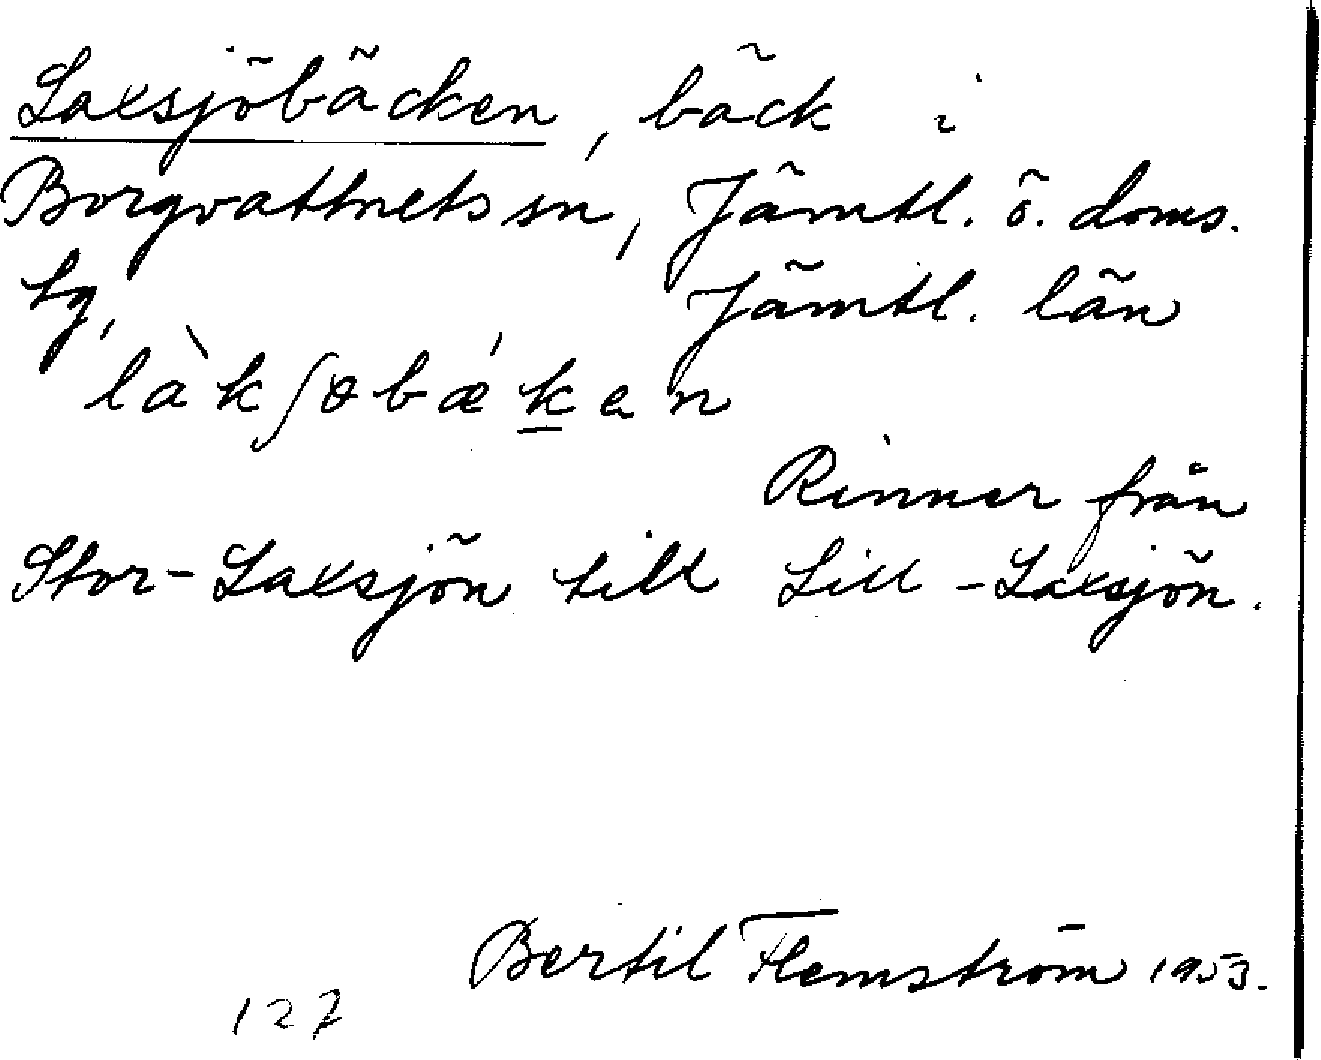 Laxsjöbäcken, bäck i
Borgvattnets sn, Jämtl. ö. doms.
hg, Jämtl. län
làkʃɵbǽk̲en
Rinner från
Stor-Laxsjön till Lill-Laxsjön.
Bertil Flemström 1953.
127